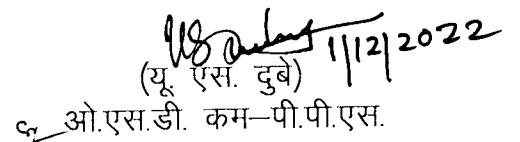 1/12/2022
(यू. एस. दुबे)
ओ.एस.डी. कम–पी.पी.एस.